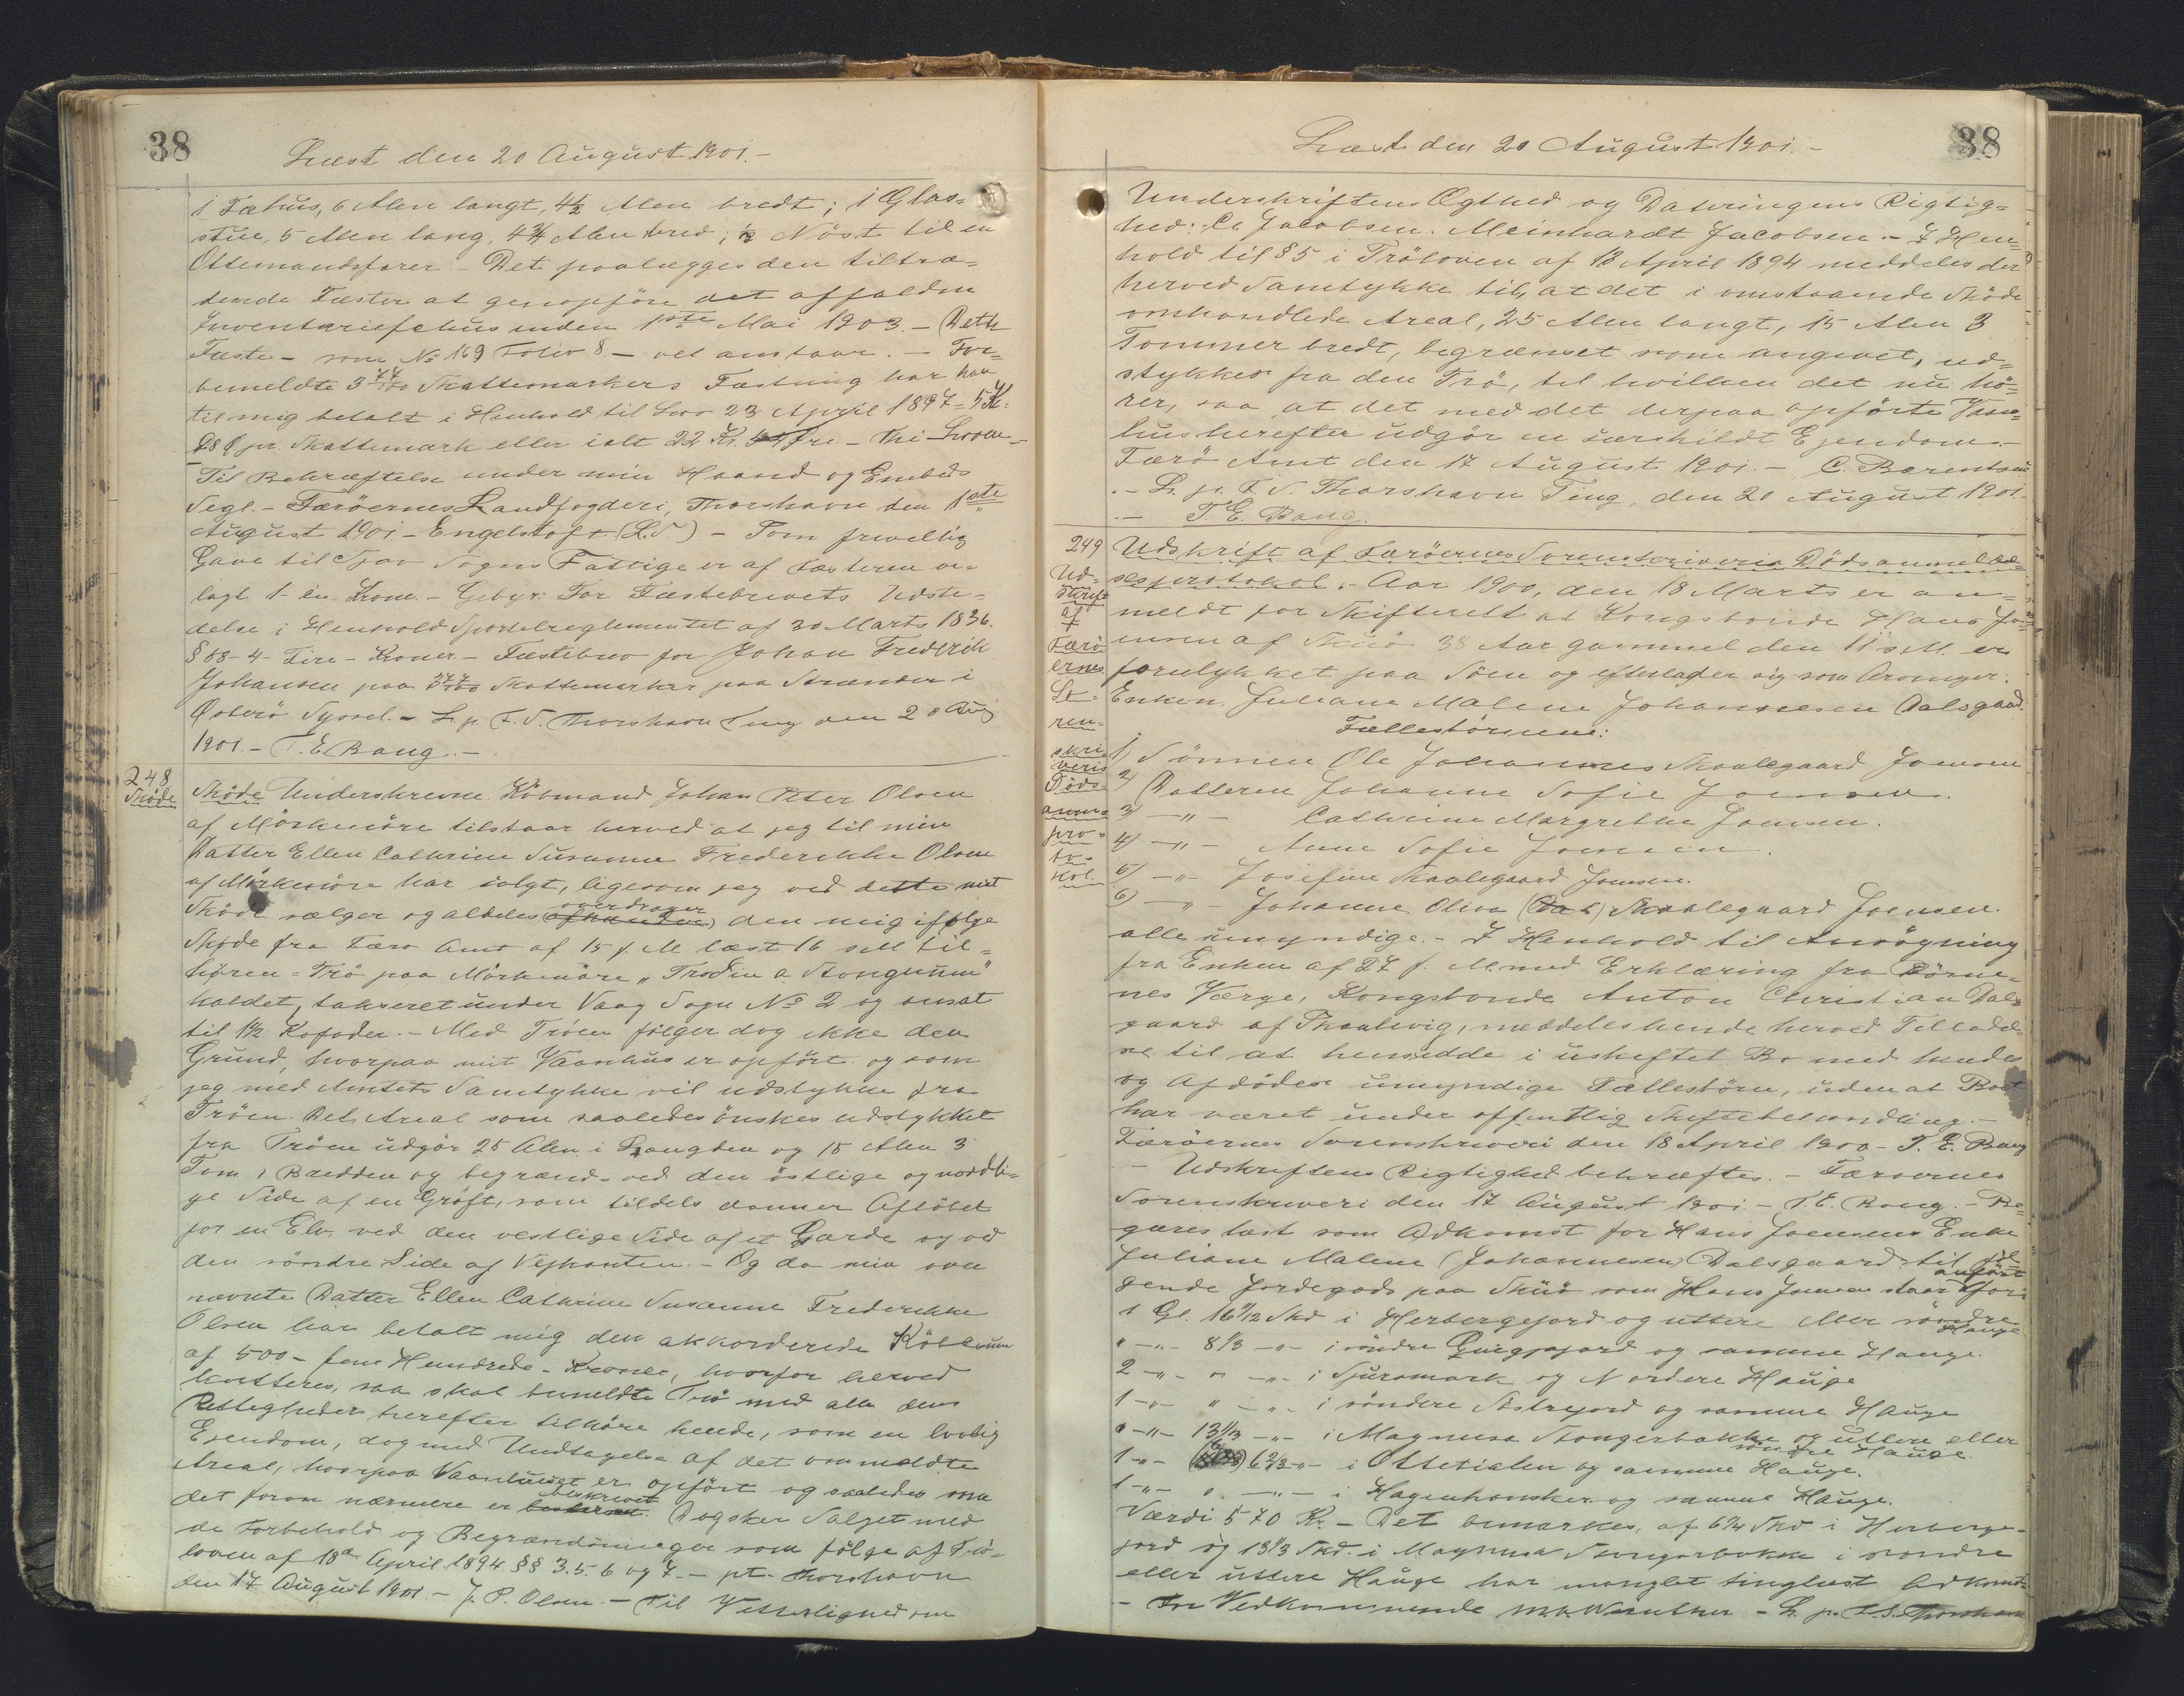 38
Læst den 20 August 1901.-
1 Fæhus, 6 Alen langt, 4½ Alen bredt; 1 Glas=
stue, 5 Alen lang, 4¾ Alen bred; ½ Nöst til en
Ottemandsfarer - Det paalægges den tiltræ=
dende Fæster at genopföre det affaldne
Inventariefehus inden 1ste Mai 1903. - Dette
Fæste - som No 169 Folio 8 - vel anstaar. - For=
bemeldte 3 77/100 Skattemarkers Fæstning har han
til mig betalt i Henhold til Lov 23 April 1897 = 5 Kr.
28 Ø pr. Skattemark eller ialt 22 Kr. Øre. - thi Loven -
Til Bekræftelse under min Haand og Embeds
Segl. - Færöernes Landfogderi, Thorshavn den 1ste
August 1901 - Engelstoft (L.S.) - Som frivillig
Gave til Sogns Fattige er af Fæsteren er=
lagt 1 - en Krone. - Gebyr: For Fæstebrevets Udste=
delse i Henhold Sportelreglementet af 30 Marts 1836.
§ 88 - 4 - Fire - Kroner - Fæstebrev for Johan Frederik
Johansen paa 3 77/100 Skattemarker paa Strænder i
Österö Syssel. - L. p. F. S. Thorshavn Ting den 20 Aug
1901 - T. E. Bang. -
248
Sköde
Sköde Underskrevne Köbmand Johan Peter Olsen
af Mörkenöre tilstaar herved at jeg til min
Datter Ellen Cathrine Susanne Frederikke Olsen
af Mörkenöre har solgt, ligesom jeg ved dette mit
Sköde sælger og aldeles (afhænder) overdrager den mig ifölge
Sköde fra Færö Amt af 15 f. M. læst 16 s M til=
hören = Trö paa Mörkenöre "Trödin a Stongunum"
kaldet, takseret under Vaag Sogn No 2 og ansat
til 1½ Kofoder. - Med Tröen fölger dog ikke den
Grund, hvorpaa mit Vaanhus er opfört og som
jeg med Amtets Samtykke vil udstykke fra
Tröen. Det Areal som saaledes önskes udstykket
fra Tröen udgör 25 Alen i Længden og 15 Alen 3
Tom. i Bredden og begrænd. ved den östlige og nordli=
ge Side af en Gröft, som tildels danner Aflöbet
for en Elv, ved den vestlige Side af et Gærde og ved
den söndre Side af Vejkanten. - Og da min oven
nævnte Datter Ellen Cathrine Susanne Frederikke
Olsen har betalt mig den akkorderede Köbesum
af 500 - fem Hundrede - Kroner, hvorfor herved
kvitteres, saa skal bemeldte Trö med alle dens
Rettigheder herefter tilhöre hende, som en lovlig
Ejendom, dog med Undtagelse af det ommeldte
Areal, hvorpaa Vaanhuset er opfört og saaledes som
det foran nærmere er beskrevet. Dog sker Salget med
de Forbehold og Begrændsninger som fölge af Trö=
loven af 18de April 1894 §§ 3. 5. 6 og 7. - pt. Thorshavn
den 17 August 1901 - J. P. Olsen. - Til Vitterlighed om
38
Læst den 20 August 1901. -
Underskriftens Ægthed og Dateringens Rigtig=
hed: Cl. Jacobsen. Meinhardt Jacobsen. - I Hen=
hold til § 5 i Tröloven af 18 April 1894 meddeles der
herved Samtykke til, at det i omstaaende Sköde
omhandlede Areal, 25 Alen langt, 15 Alen 3
Tommer bredt, begrænset som angivet, ud=
stykkes fra den Trö, til hvilken det nu hö=
rer, saa at det med det derpaa opförte Vaan=
hus herefter udgör en særskildt Ejendom. -
Færö Amt den 17 August 1901. - C. Bærentsen
. - L. p. F. S. Thorshavn Ting, den 20 August 1901.
- T. E. Bang.
249
Ud=
skrift
af
Færö
ernes
So=
ren=
skri
veris
Döds=
anm=
pro=
to=
kol.
Udskrift af Færöernes Sorenskriveris Dödsanmeldel=
sesprotokol. - Aar 1900, den 18 Marts er an=
meldt for Skifterett at Kongsbonde Hans Jo=
ensen af Skuö 38 Aar gammel den 11 s. M. er
forulykket paa Söen og efterlader sig som Arvinger:
Enken Juliane Malene Johannesen Dalsgaard.
Fællesbörnene:
1) Sönnen Ole Johannes Skaalegaard Joensen
2) Datteren Johanne Sofie Joensen.
3) -"- Cathrine Margrethe Joensen.
4) -"- Anne Sofie Joensen.
5) -"- Josefine Skaalegaard Joensen.
6) -"- Johanne Oliva (Dal) Skaalegaard Joensen.
alle umyndige. - I Henhold til Ansögning
fra Enken af 27 f. M. med Erklæring fra Börne=
nes Værge, Kongsbonde Anton Christian Dals
gaard af Skaalevig, meddeles hende herved Tilladel=
se til at hensidde i uskiftet Bo med hendes
og Afdödes umyndige Fællesbörn, uden at Boet
har været under offentlig Skiftebehandling. -
Færöernes Sorenskriveri den 18 April 1900 - T. E. Bang
- Udskriftens Rigtighed bekræftes. - Færoernes
Sorenskriveri den 17 August 1901. - T. E. Bang. - Be=
gæres læst som Adkomst for Hans Joensens Enke
Juliane Malene (Johannesen) Dalsgaard til föl=
gende Jordegods paa Skuö som Hans Joensen staar anfört for:
1 Gl. 16 7/12 Skd i Herbergejord og uttere eller söndre Hauge
" -"- 8 1/3 -"- i söndre Gueggjajord og samme Hauge.
2 -"- " -"- i Spuramark og Nordere Hauge
1 -"- " -"- i söndere Östrejord og samme Hauge
" -"- 13 1/3 -"- i Magnusa Stongerbakke og uttere eller söndre Hauge.
1 -"- 6 2/3 -"- i Ottetialen og samme Hauge.
1 -"- " -"- i Hagenhansker og samme Hauge.
Værdi 570 Kr. - Det bemærkes, af 6 ¼ Skd i Herberge-
jord og 13 1/3 Skd. i Magnusa Stongerbakke i söndre
eller uttere Hauge har manglet tinglæst Adkomst
- For Vedkommende - L. p. F. S. Thorshavn